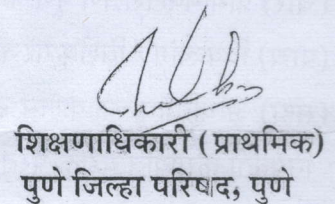 शिक्षणाधिकारी ( प्राथमिक)
पुणे जिल्हा परिषद, पुणे